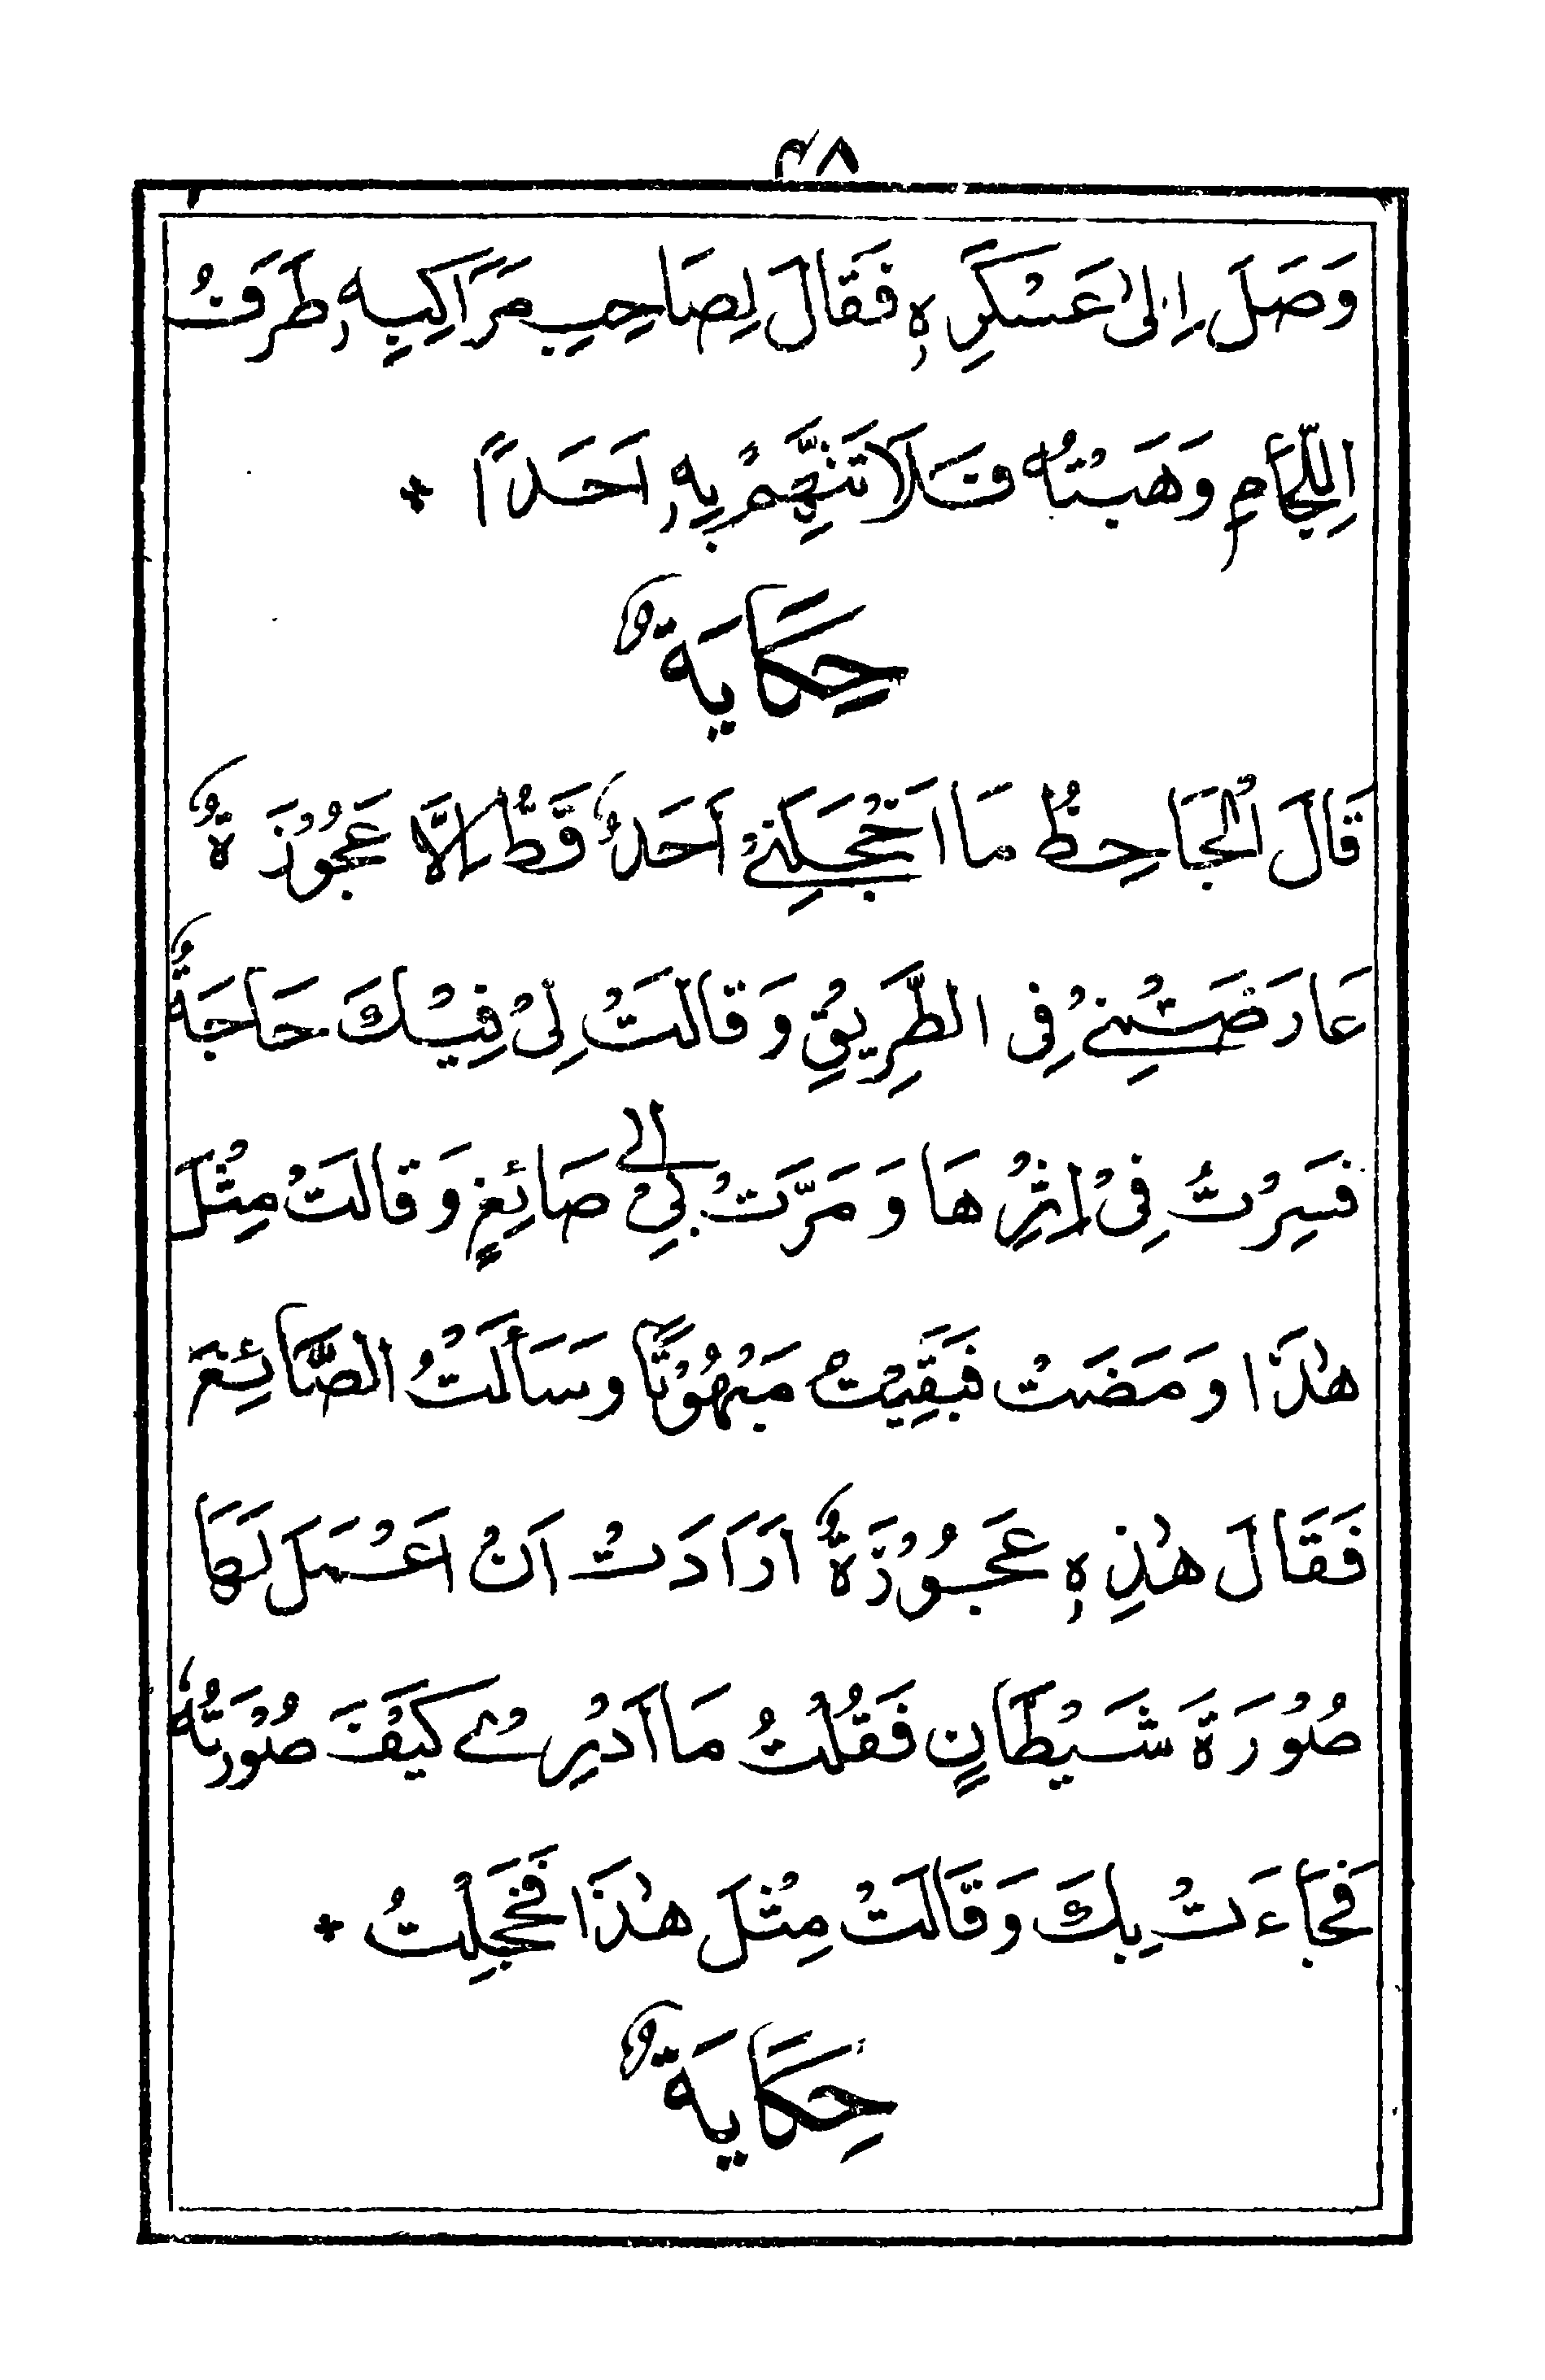 ٣٨
وَصَلَ اِلىٰ عَسْكَرِهٖ فَقَالَ لِصَاحِبِ مَرَاكِبِهٖ طَرَفُ
اللِّجَامِ وَهَبْتُهٗ فَلَا تَتَّهِمْ بِهٖ اَحَدًا +
حِكَايَةٌ
قَالَ الْجَاحِظُ مَا اَخْجَلَنِيْ اَحَدٌ قَطُّ اِلَّا عَجُوْزَةٌ
عَارَضَتْنِيْ فِى الطَّرِيْقِ وَقَالَتْ لِىْ فِيْكَ حَاجَةٌ
فَسِرْتُ فِىْ اِثْرِهَا وَ مَرَّتْ بِىْ اِلٰى صَائِغٍ وَقَالَتْ مِثْلَ
هٰذَا وَمَضَتْ فَبَقِيْتُ مَبْهُوْتًا وَسَأَلْتُ الصَّائِغَ
فَقَالَ هٰذِهٖ عَجُوْزَةٌ اَرَادَتْ اَنْ اَعْمَلَ لَهَا
صُوْرَةَ شَيْطَانٍ فَقُلْتُ مَا اَدْرِيْ كَيْفَ صُوْرَتُهٗ
فَجَاءَتْ بِكَ وَقَالَتْ مِثْلَ هٰذَا فَخَجِلْتُ +
حِكَايَةٌ